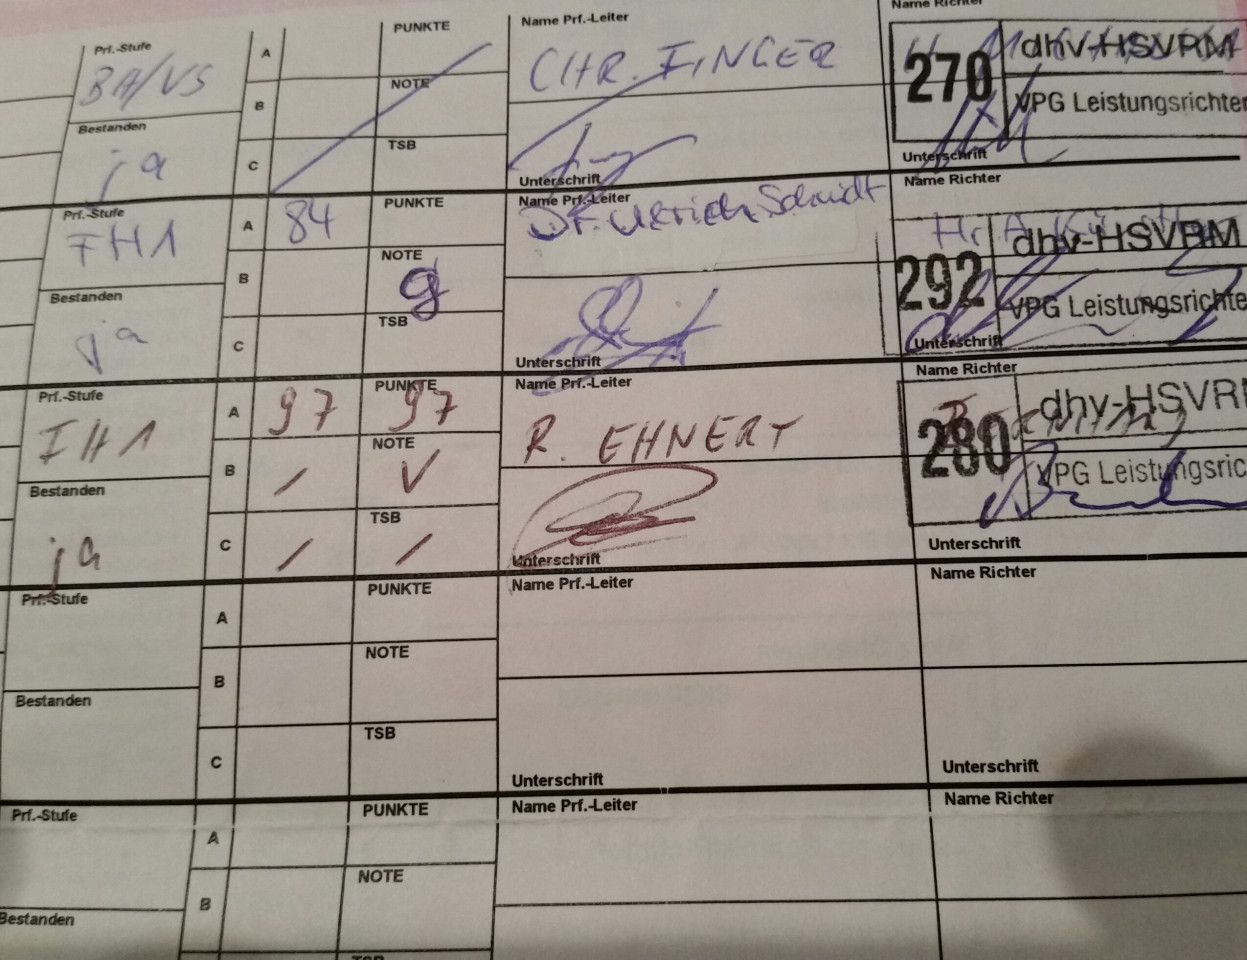 Name Richter
Prf.-Stufe A PUNKTE Name Prf.-Leiter
BH/VS CHR. FINGER
270 dhv-HSVRM
B NOTE
VPG Leistungsrichter
Bestanden
ja C TSB
Unterschrift Unterschrift
Prf.-Stufe A 84 PUNKTE Name Prf.-Leiter Name Richter
FH1 Dr. Ulrich Schmidt
292 dhv-HSVRM
B NOTE
g
VPG Leistungsrichte
Bestanden
ja C TSB
Unterschrift Unterschrift
Prf.-Stufe A 97 PUNKTE 97 Name Prf.-Leiter Name Richter
IH1 R. EHNERT
280 dhv-HSVR
B / NOTE V
VPG Leistungsric
Bestanden
ja C / TSB /
Unterschrift Unterschrift
Prf.-Stufe A PUNKTE Name Prf.-Leiter Name Richter
B NOTE
Bestanden
C TSB
Unterschrift Unterschrift
Prf.-Stufe A PUNKTE Name Prf.-Leiter Name Richter
B NOTE
Bestanden
TSB